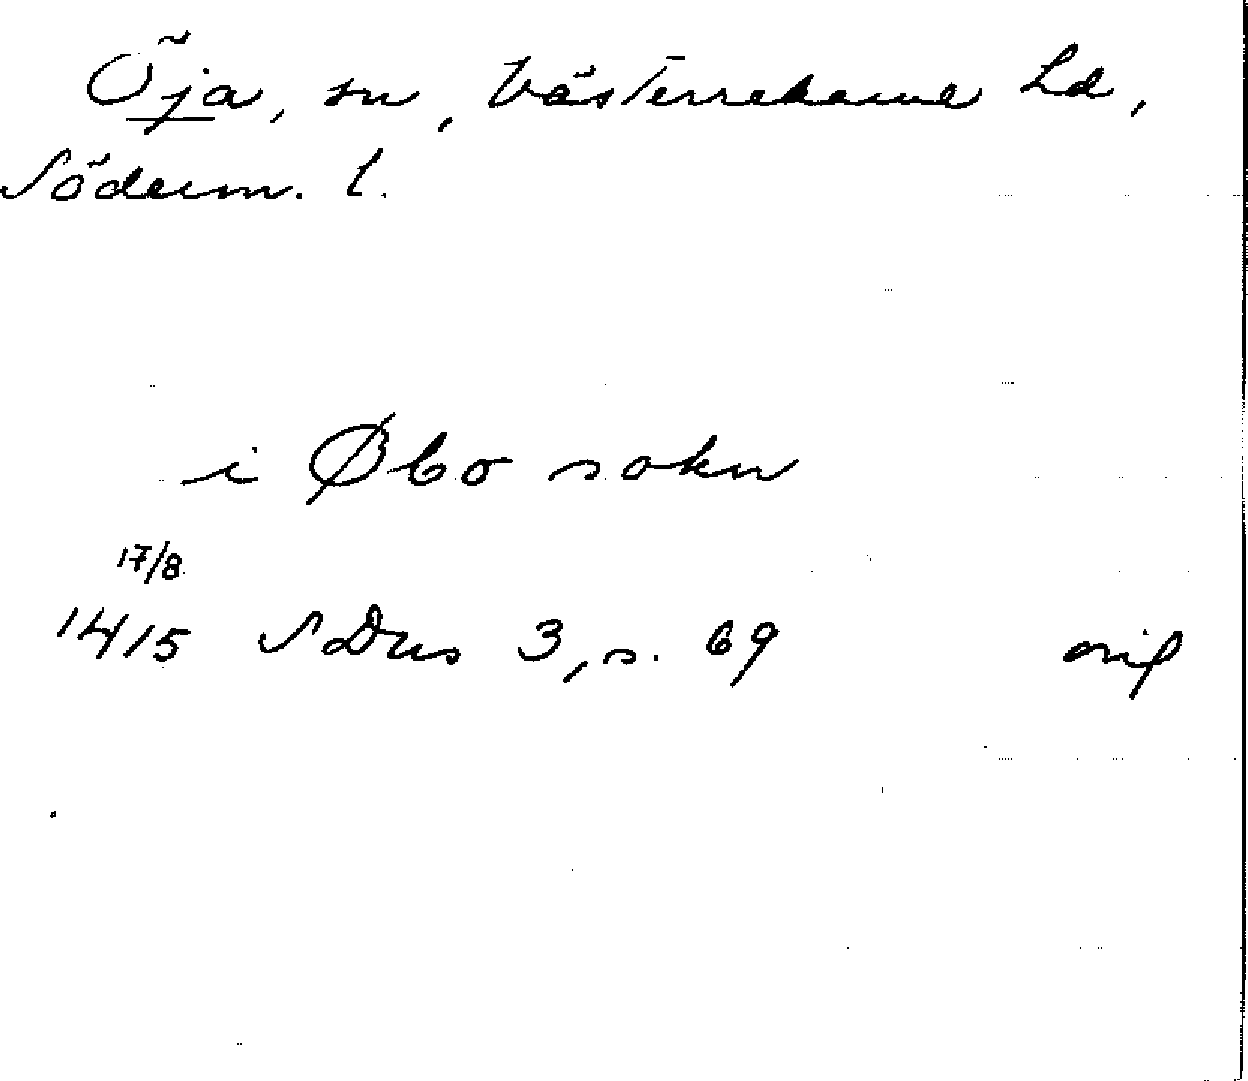 Öja, sn, Västerrekarne hd,
Söderm. l.
i Øbo sokn
17/8
1415 SDns 3, s. 69 orig